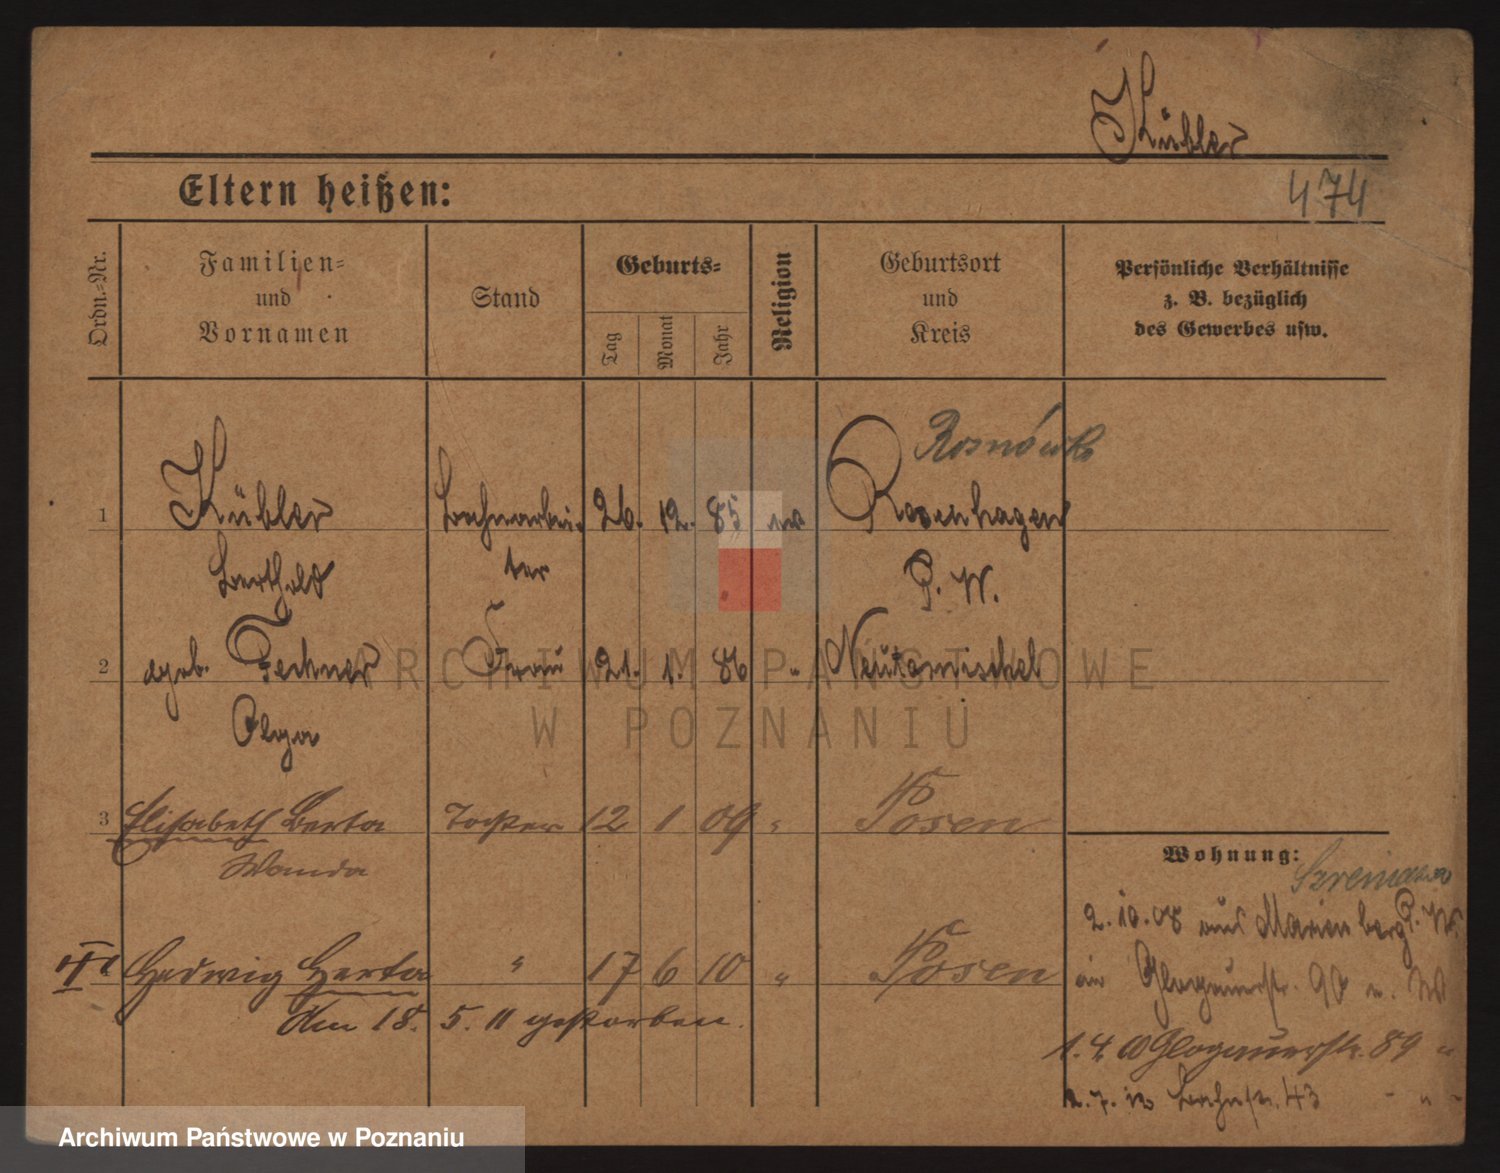 Kübler
Eltern heißen:
474
Ordn.-Nr.
Familien-
und
Vornamen
Stand
Geburts-
Tag
Monat
Jahr
Religion
Geburtsort
und
Kreis
Persönliche Verhältnisse
z. B. bezüglich
des Gewerbes usw.
Rosnówko
1 Kübler Bahnarbei- 26. 12. 85 ev Rosenhagen
Berthold ter P. W.
2 geb. Fechner Frau 21. 1. 86 " Neutomischel
Olga
3 Elisabeth Berta Tochter 12 1 09 " Posen
Wanda
Hedwig Herta " 17 6 10 " Posen
Am 18. 5. 11 gestorben.
Wohnung:
2. 10. 08 aus Marienberg P. W.
in Glogauerstr. 90 u. W
1. 4. 10 Glogauerstr. 89 "
2. 7. 12 Bahnstr. 43 - " -
ARCHIWUM PAŃSTWOWE
W POZNANIU
Archiwum Państwowe w Poznaniu